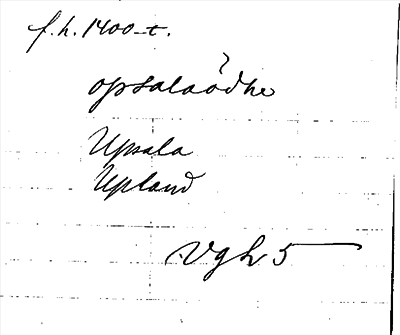 f. h. 1400-t.
opsalaödhe
Upsala
Upland
Vgh 5